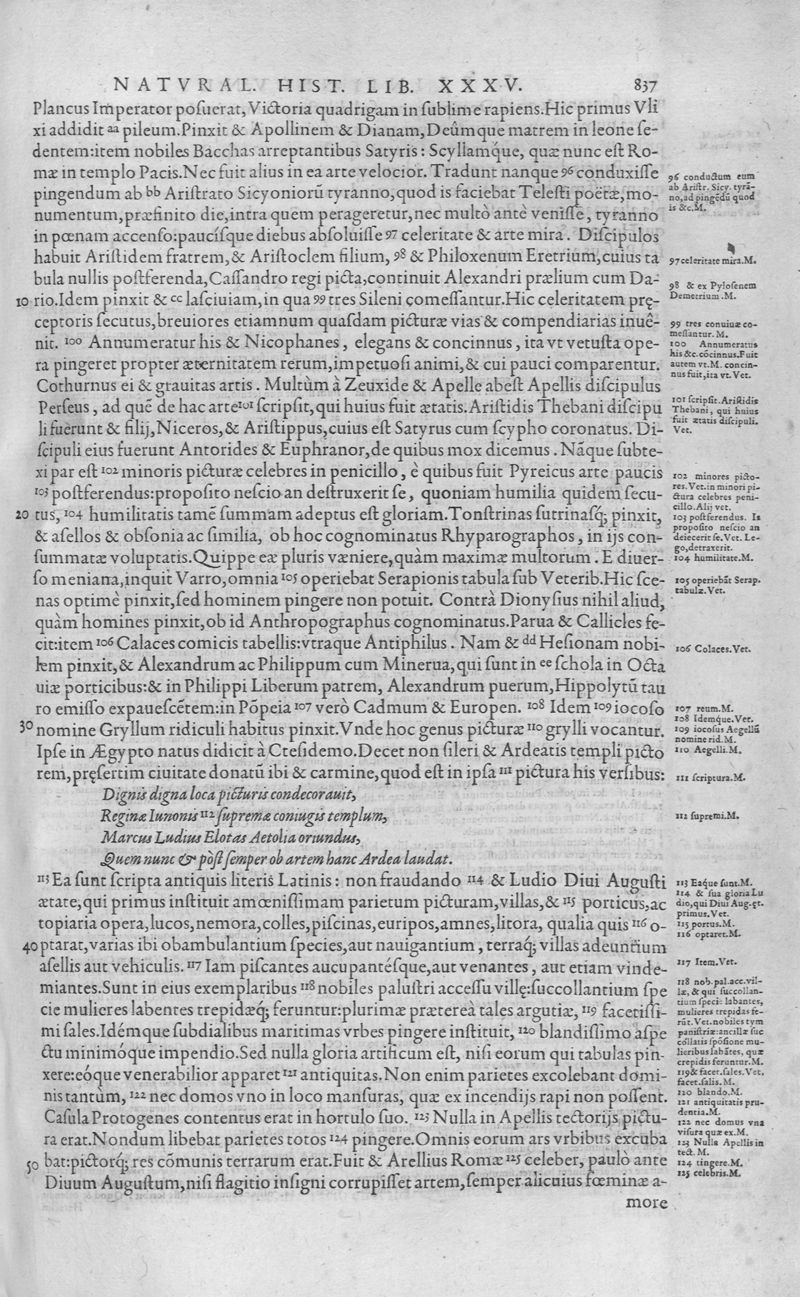 NATVRAL. HIST. LIB. XXXV. 837
Plancus Imperator poſuerat, Victoria quadrigam in ſublime rapiens. Hic primus Vli
xi addidit aa pileum. Pinxit & Apollinem & Dianam, Deûmque matrem in leone ſe-
dentem: item nobiles Bacchas arreptantibus Satyris: Scyllamq́ue, quæ nunc eſt Ro-
mæ in templo Pacis. Nec fuit alius in ea arte velocior. Tradunt nanque 96 conduxiſſe
pingendum ab bb Ariſtrato Sicyoniorū tyranno, quod is faciebat Teleſti poëtæ, mo-
numentum, præfinito die, intra quem perageretur, nec multò antè veniſſe, tyranno
in pœnam accenſo: paucíſque diebus abſoluiſſe 97 celeritate & arte mira. Diſcipulos
habuit Ariſtidem fratrem, & Ariſtoclem filium, 98 & Philoxenum Eretrium, cuius ta
bula nullis poſtferenda, Caſſandro regi picta, continuit Alexandri prælium cum Da-
10 rio. Idem pinxit & cc laſciuiam, in qua 99 tres Sileni comeſſantur. Hic celeritatem prę-
ceptoris ſecutus, breuiores etiamnum quaſdam picturæ vias & compendiarias inuē-
nit. 100 Annumeratur his & Nicophanes, elegans & concinnus, ita vt vetuſta ope-
ra pingeret propter æternitatem rerum, impetuoſi animi, & cui pauci comparentur.
Cothurnus ei & grauitas artis. Multùm à Zeuxide & Apelle abeſt Apellis diſcipulus
Perſeus, ad quē de hac arte 101 ſcripſit, qui huius fuit ætatis. Ariſtidis Thebani diſcipu
li fuerunt & filij, Niceros, & Ariſtippus, cuius eſt Satyrus cum ſcypho coronatus. Di-
ſcipuli eius fuerunt Antorides & Euphranor, de quibus mox dicemus. Nāque ſubte-
xi par eſt 102 minoris picturæ celebres in penicillo, è quibus fuit Pyreicus arte paucis
103 poſtferendus: propoſito neſcio an deſtruxerit ſe, quoniam humilia quidem ſecu-
20 tus, 104 humilitatis tamē ſummam adeptus eſt gloriam. Tonſtrinas ſutrinaſq; pinxit,
& aſellos & obſonia ac ſimilia, ob hoc cognominatus Rhyparographos, in ijs con-
ſummatæ voluptatis. Quippe ex pluris væniere, quàm maximæ multorum. E diuer-
ſo meniana, inquit Varro, omnia 105 operiebat Serapionis tabula ſub Veterib. Hic ſce-
nas optimè pinxit, ſed hominem pingere non potuit. Contrà Dionyſius nihil aliud,
quàm homines pinxit, ob id Anthropographus cognominatus. Parua & Callicles fe-
cit: item 106 Calaces comicis tabellis: vtraque Antiphilus. Nam & dd Heſionam nobi-
lem pinxit, & Alexandrum ac Philippum cum Minerua, qui ſunt in ee ſchola in Octa
uiæ porticibus: & in Philippi Liberum patrem, Alexandrum puerum, Hippolytū tau
ro emiſſo expaueſcētem: in Pōpeia 107 verò Cadmum & Europen. 108 Idem 109 iocoſo
30 nomine Gryllum ridiculi habitus pinxit. Vnde hoc genus picturæ 110 grylli vocantur.
Ipſe in Ægypto natus didicit à Cteſidemo. Decet non ſileri & Ardeatis templi picto
rem, pręſertim ciuitate donatū ibi & carmine, quod eſt in ipſa 111 pictura his verſibus:
Dignis digna loca picturis condecorauit,
Reginæ Iunonis 112 ſupremæ coniugis templum,
Marcus Ludius Elotas Aetolia oriundus,
Quem nunc & pòſt ſemper ob artem hanc Ardea laudat.
113 Ea ſunt ſcripta antiquis literis Latinis: non fraudando 114 & Ludio Diui Auguſti
ætate, qui primus inſtituit amœniſſimam parietum picturam, villas, & 115 porticus, ac
topiaria opera, lucos, nemora, colles, piſcinas, euripos, amnes, litora, qualia quis 116 o-
40 ptarat, varias ibi obambulantium ſpecies, aut nauigantium, terraq́; villas adeuntium
aſellis aut vehiculis. 117 Iam piſcantes aucupantéſque, aut venantes, aut etiam vinde-
miantes. Sunt in eius exemplaribus 118 nobiles paluſtri acceſſu villę: ſuccollantium ſpe
cie mulieres labentes trepidæq́; feruntur: plurimæ prætereà tales argutiæ, 119 facetiſſi-
mi ſales. Idémque ſubdialibus maritimas vrbes pingere inſtituit, 120 blandiſſimo aſpe
ctu minimóque impendio. Sed nulla gloria artificum eſt, niſi eorum qui tabulas pin-
xere: eóque venerabilior apparet 121 antiquitas. Non enim parietes excolebant domi-
nis tantum, 122 nec domos vno in loco manſuras, quæ ex incendijs rapi non poſſent.
Caſula Protogenes contentus erat in hortulo ſuo. 123 Nulla in Apellis tectorijs pictu-
ra erat. Nondum libebat parietes totos 124 pingere. Omnis eorum ars vrbibus excuba
50 bat: pictorq́; res cōmunis terrarum erat. Fuit & Arellius Romæ 125 celeber, paulò ante
Diuum Auguſtum, niſi flagitio inſigni corrupiſſet artem, ſemper alicuius fœminæ a-
more
96 conductum eum
ab Ariſtr. Sicy. tyrā-
no, ad pingēdū quod
is &c. M.
97 celeritate mira. M.
98 & ex Pyloſenem
Demetrium. M.
99 tres conuiuæ co-
meſſantur. M.
100 Annumeratus
his &c. cōcinnus. Fuit
autem vt. M. concin-
nus fuit, ita vt. Vet.
101 ſcripſit. Ariſtidis
Thebani, qui huius
fuit ætatis diſcipuli.
Vet.
102 minores picto-
res. Vet. in minori pi-
ctura celebres peni-
cillo. Alij vet.
103 poſtferendus. Is
propoſito neſcio an
deiecerit ſe. Vet. Le-
go, detraxerit.
104 humilitate. M.
105 operiebāt Serap.
tabulæ. Vet.
106 Colaces. Vet.
107 reum. M.
108 Idemq́ue. Vet.
109 iocoſus Aegellū
nomine rid. M.
110 Aegelli. M.
111 ſcriptura. M.
112 ſupremi. M.
113 Eaque ſunt. M.
114 & ſua gloria Lu
dio, qui Diui Aug. ęt.
primus. Vet.
115 portus. M.
116 optaret. M.
117 Item. Vet.
118 nob. pal. acc. vil-
læ, & qui ſuccollan-
tium ſpeci: labantes,
mulieres trepidas fe-
rūt. Vet. nobiles tym
paniſtriæ: ancillæ ſuc
collatis ſpōſione mu-
lieribus labātes, quæ
crepidis feruntur. M.
119 & facet. ſales. Vet.
facet. ſalis. M.
120 blando. M.
121 antiquitatis pru-
dentia. M.
122 nec domus vna
viſura quæ ex. M.
123 Nulla Apellis in
tect. M.
124 tingere. M.
125 celebris. M.